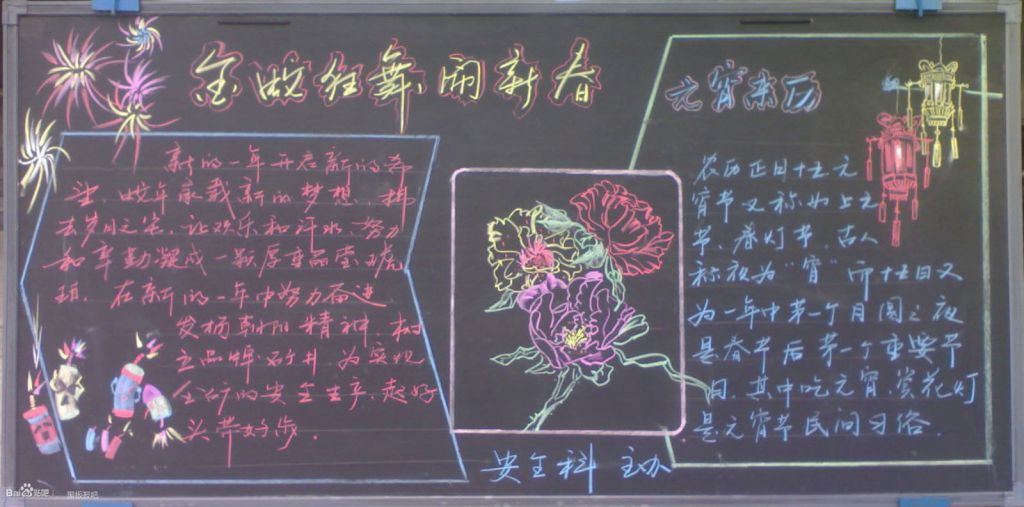 金蛇狂舞闹新春
新的一年开启新的希
望，蛇年承载新的梦想，拂
去岁月之尘，让欢乐和汗水、努力
和辛勤凝成一颗厚重晶莹的虎
珀，在新的一年中努力奋进
发扬朝阳精神，树
立品牌矿井，为实现
全矿的安全生产，起好
头带好步。
元宵来历
农历正月十五元
宵节又称为上元
节，春灯节，古人
称夜为“宵”而十五日又
为一年中第一个月圆之夜
是春节后第一个重要节
日，其中吃元宵、赏花灯
是元宵节民间习俗。
安全科 主办
Baidu贴吧